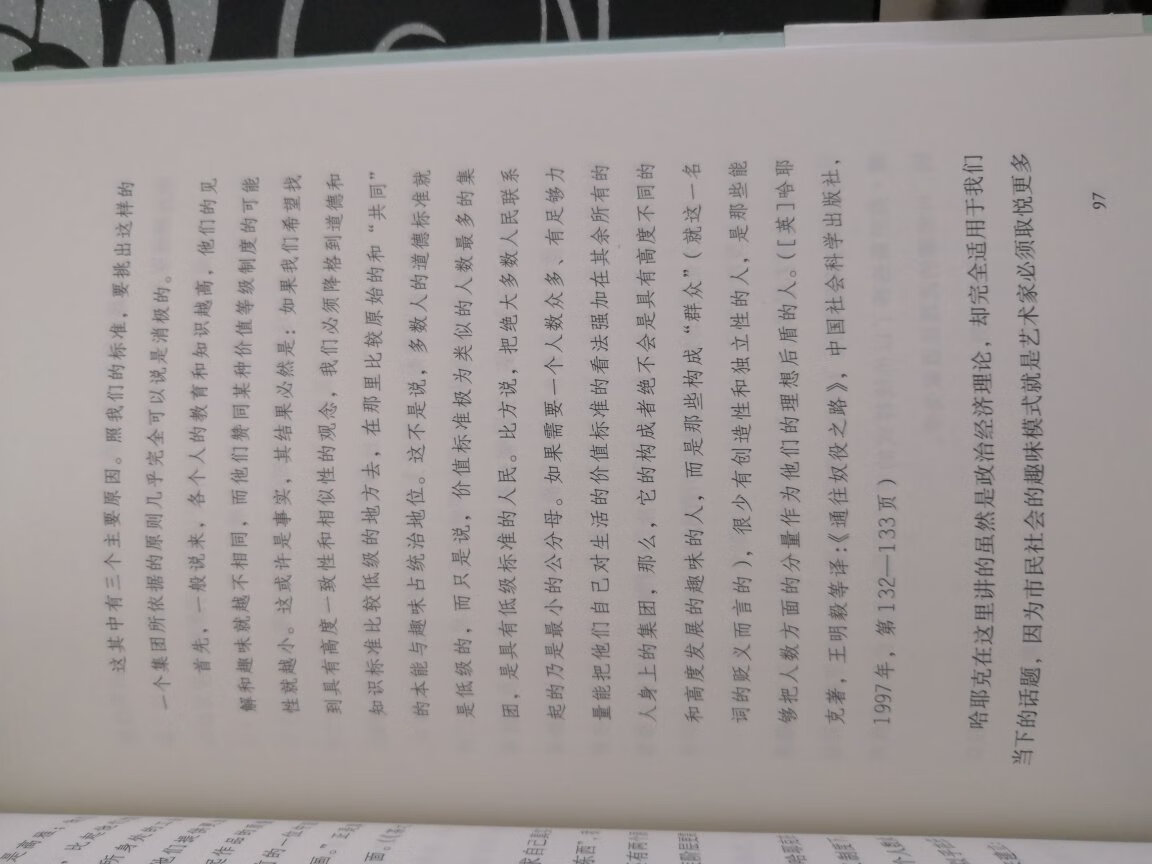 这其中有三个主要原因。照我们的标准，要挑出这样的
一个集团所依据的原则几乎完全可以说是消极的。
首先，一般说来，各个人的教育和知识越高，他们的见
解和趣味就越不相同，而他们赞同某种价值等级制度的可能
性就越小。这或许是事实，其结果必然是：如果我们希望找
到具有高度一致性和相似性的观念，我们必须降格到道德和
知识标准比较低级的地方去，在那里比较原始的和“共同”
的本能与趣味占统治地位。这不是说，多数人的道德标准就
是低级的，而只是说，价值标准极为类似的人数最多的集
团，是具有低级标准的人民。比方说，把绝大多数人民联系
起的乃是最小的公分母。如果需要一个人数众多、有足够力
量能把他们自己对生活的价值标准的看法强加在其余所有的
人身上的集团，那么，它的构成者绝不会是具有高度不同的
和高度发展的趣味的人，而是那些构成“群众”（就这一名
词的贬义而言的），很少有创造性和独立性的人，是那些能
够把人数方面的分量作为他们的理想后盾的人。（［英］哈耶
克著，王明毅等译：《通往奴役之路》，中国社会科学出版社，
1997年，第132—133页）
哈耶克在这里讲的虽然是政治经济理论，却完全适用于我们
当下的话题，因为市民社会的趣味模式就是艺术家必须取悦更多
97